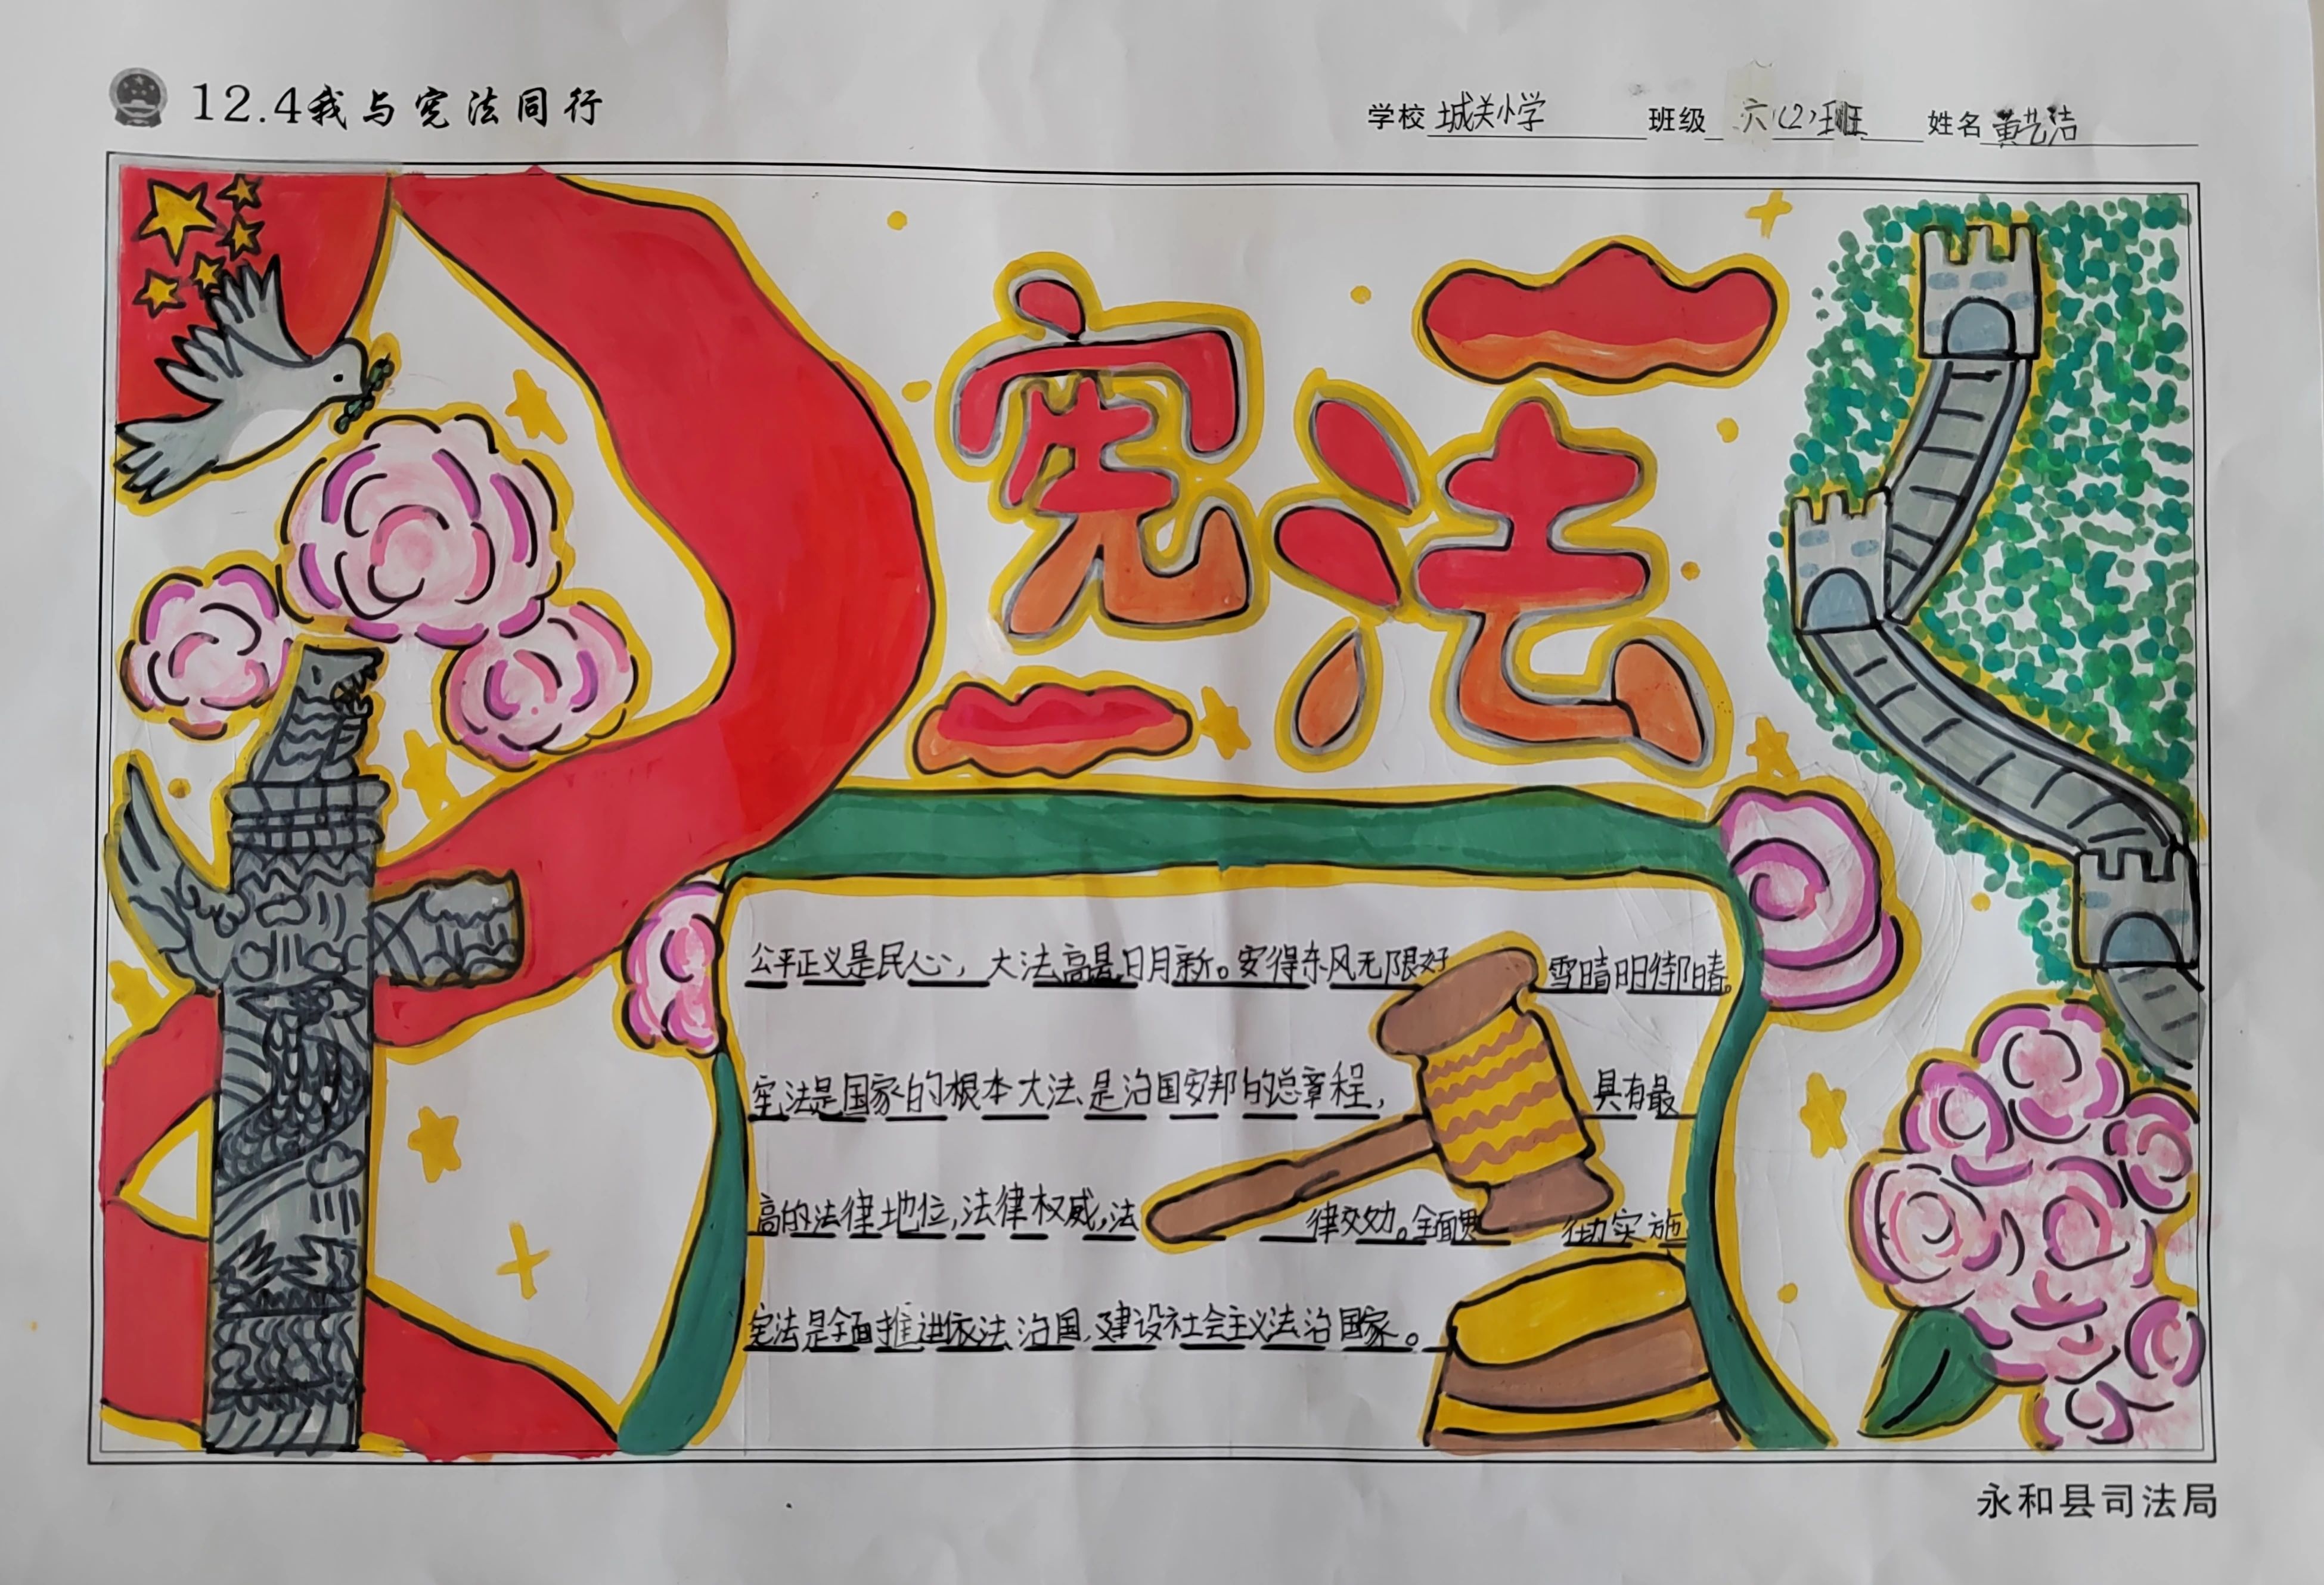 12.4我与宪法同行
学校 城关小学 班级 六(2)班 姓名 黄艺洁
宪法
公平正义是民心，大法高悬日月新。安得东风无限好 雪晴明街春。
宪法是国家的根本大法是治国安邦的总章程， 具有最
高的法律地位，法律权威，法 律效力。全面贯 彻实施
宪法是全面推进依法治国，建设社会主义法治国家。
永和县司法局